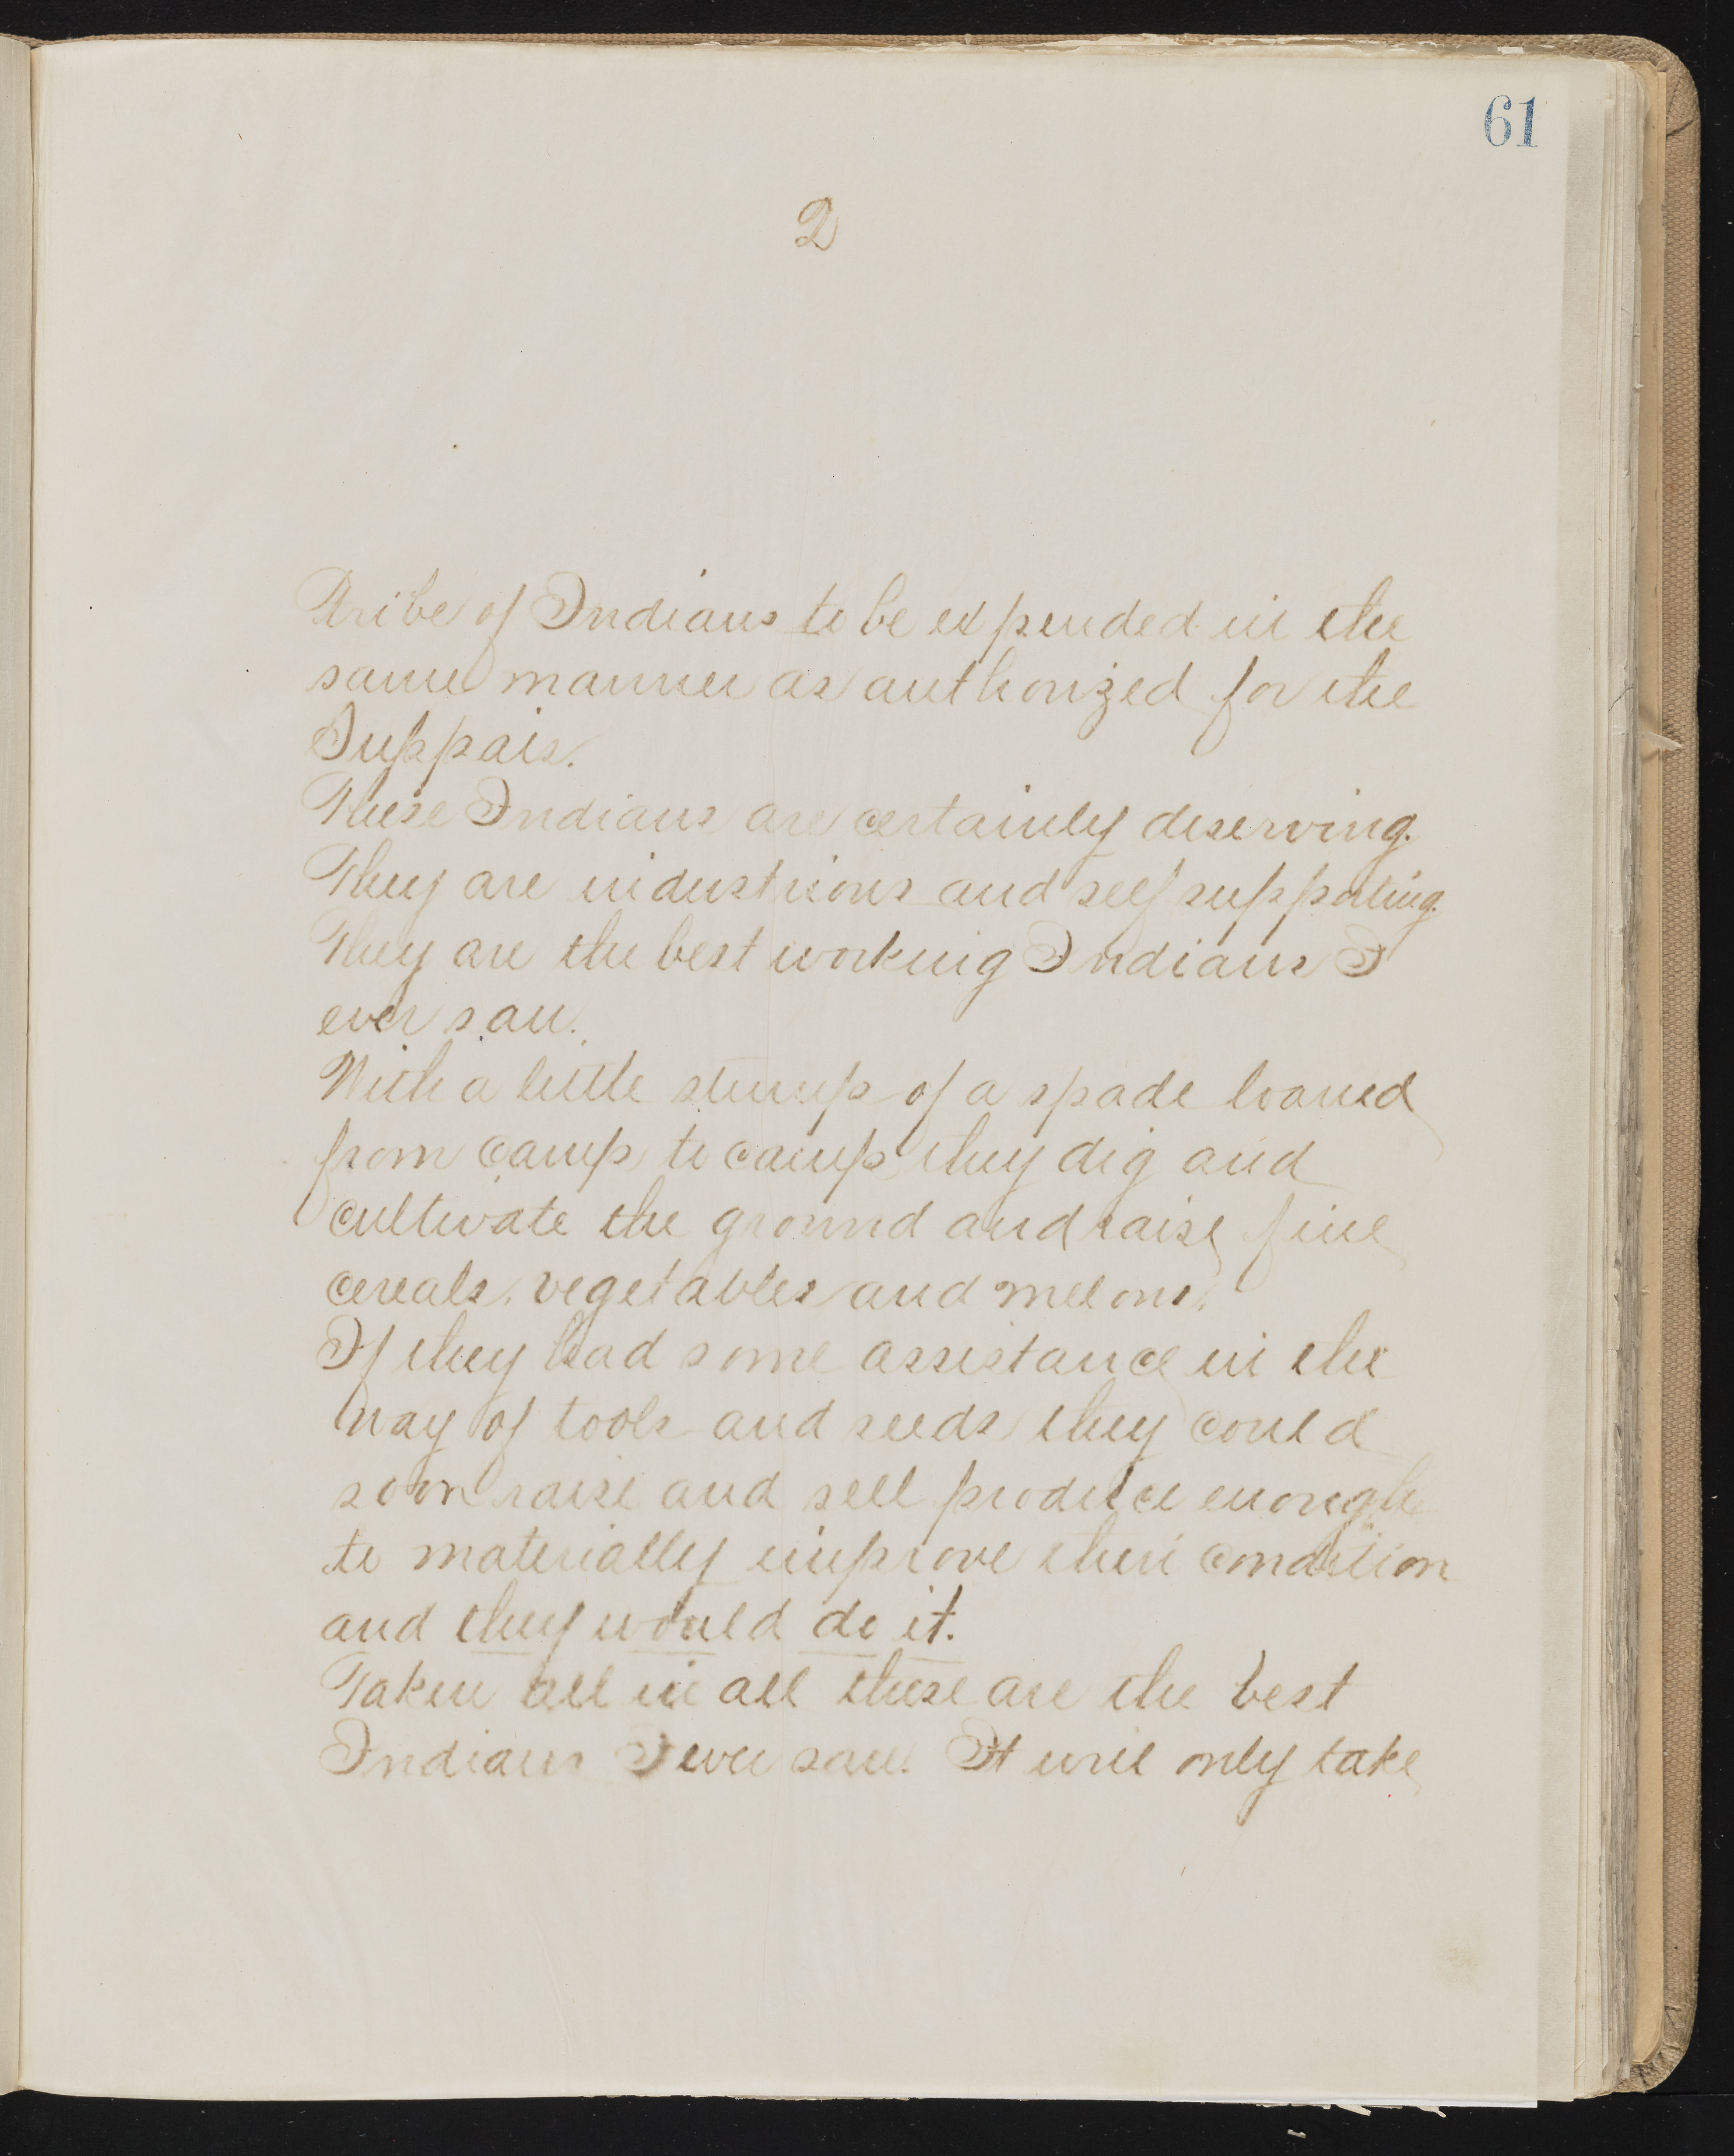 61
2
Tribe of Indians to be expended in the
same manner as authorized for the
Suppais.
These Indians are certainly deserving.
They are industrious and self supporting.
They are the best working Indians I
ever saw.
With a little stump of a spade loaned
from camp to camp they dig and
cultivate the ground and raise fine
cereals, vegetables and melons.
If they had some assistance in the
way of tools and seeds they could
soon raise and sell produce enough
to materially improve their condition
and they would do it.
Taken all in all these are the best
Indians I ever saw. It will only take